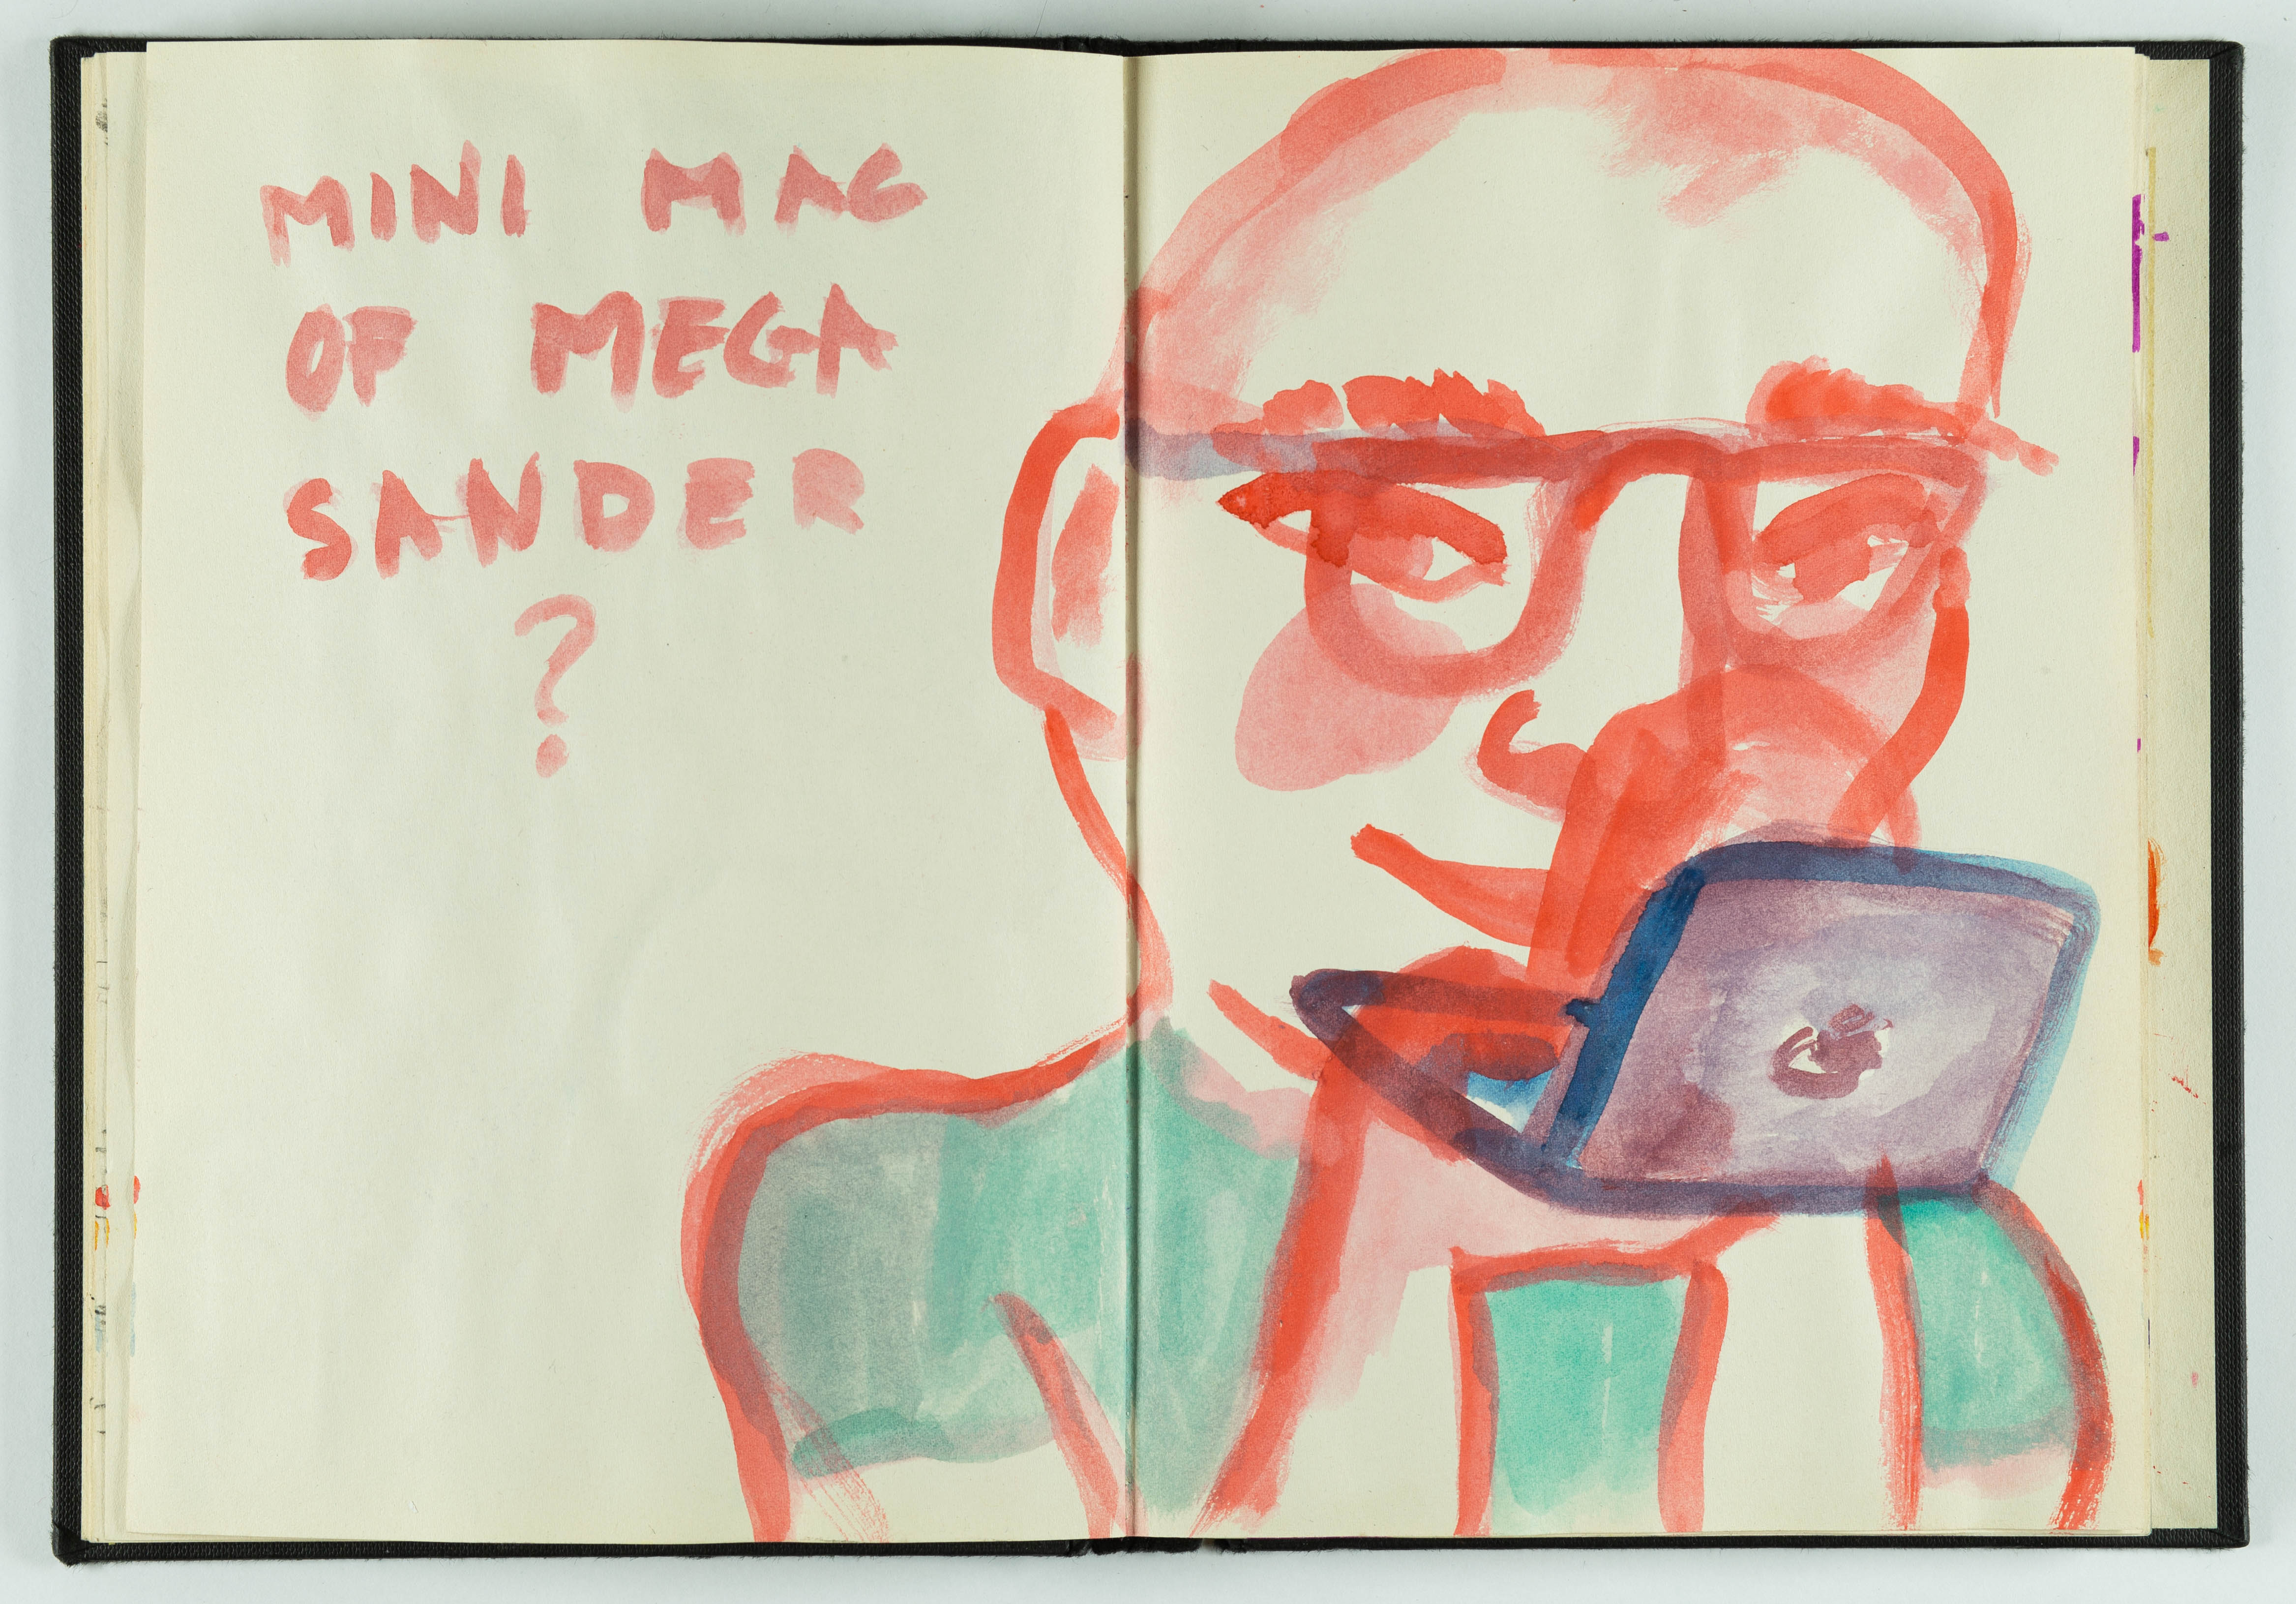 MINI MAC
OF MEGA
SANDER
?